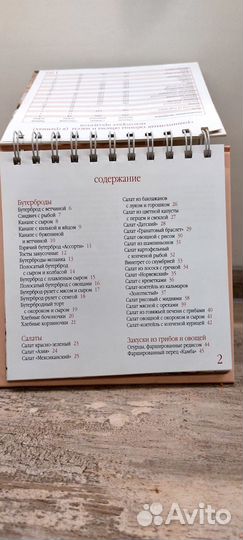 содержание
Бутерброды
Бутерброд с ветчиной 6
Сэндвич с рыбой 7
Канапе с сыром 8
Канапе с килькой и яйцом 9
Канапе с бужениной
и ветчиной 10
Горячий бутерброд «Ассорти» 11
Тосты закусочные 12
Бутерброды-мозаика 13
Полосатый бутерброд
с сыром и колбасой 14
Бутерброд с плавленным сыром 15
Полосатый бутерброд с овощами 16
Бутерброд-рулет с мясом и сыром 17
Бутерброд-рулет с семгой 18
Бутербродный торт
с окороком и сыром 19
Хлебные бочоночки 20
Хлебные корзиночки 21
Салаты
Салат красно-зеленый 23
Салат «Азия» 24
Салат «Мексиканский» 25
Салат из баклажанов
с луком и горошком 26
Салат из цветной капусты
с перцем и свеклой 27
Салат «Датский» 28
Салат «Гранатовый браслет» 29
Салат овощной с рисом 30
Салат из шампиньонов 31
Салат картофельный
с копченой рыбой 32
Винегрет со скумбрией 33
Салат из лосося с гречкой 34
Салат «Норвежский» 35
Салат с креветками 36
Салат-коктейль из кальмаров
«Золотистый» 37
Салат рисовый с мидиями 38
Салат мясной с орехами 39
Салат из говяжьей печени с грибами 40
Салат овощной с окороком и сыром 41
Салат-коктейль с копченой курицей 42
Закуски из грибов и овощей
Огурцы, фаршированные редисом 44
Фаршированный перец «Камба» 45
2
Avito